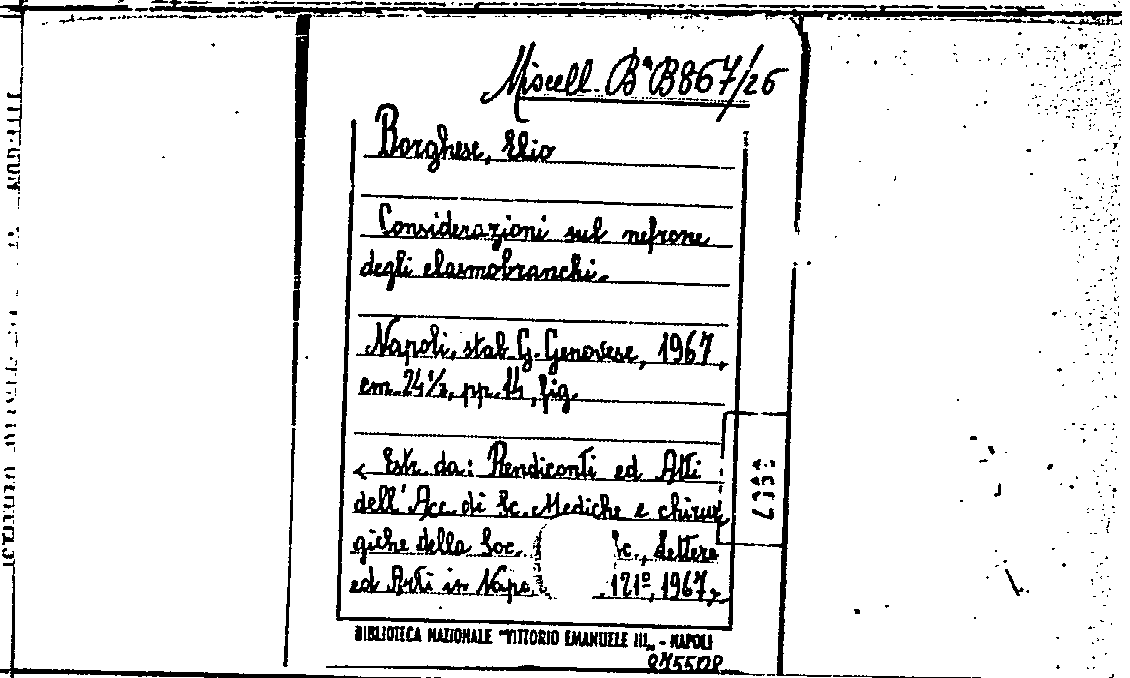 Miscell. Bª B867/26
Borghese, Elio
Considerazioni sul nefrone
degli elasmobranchi.
Napoli, stab. G. Genovese, 1967,
cm. 24½, pp. 14, fig.
< Estr. da: Rendiconti ed Atti
dell'Acc. di Sc. Mediche e chirur
giche della Soc. Sc., Lettere
ed Arti in Napo 121º, 1967,>
BIBLIOTECA NAZIONALE "VITTORIO EMANUELE III„ - NAPOLI